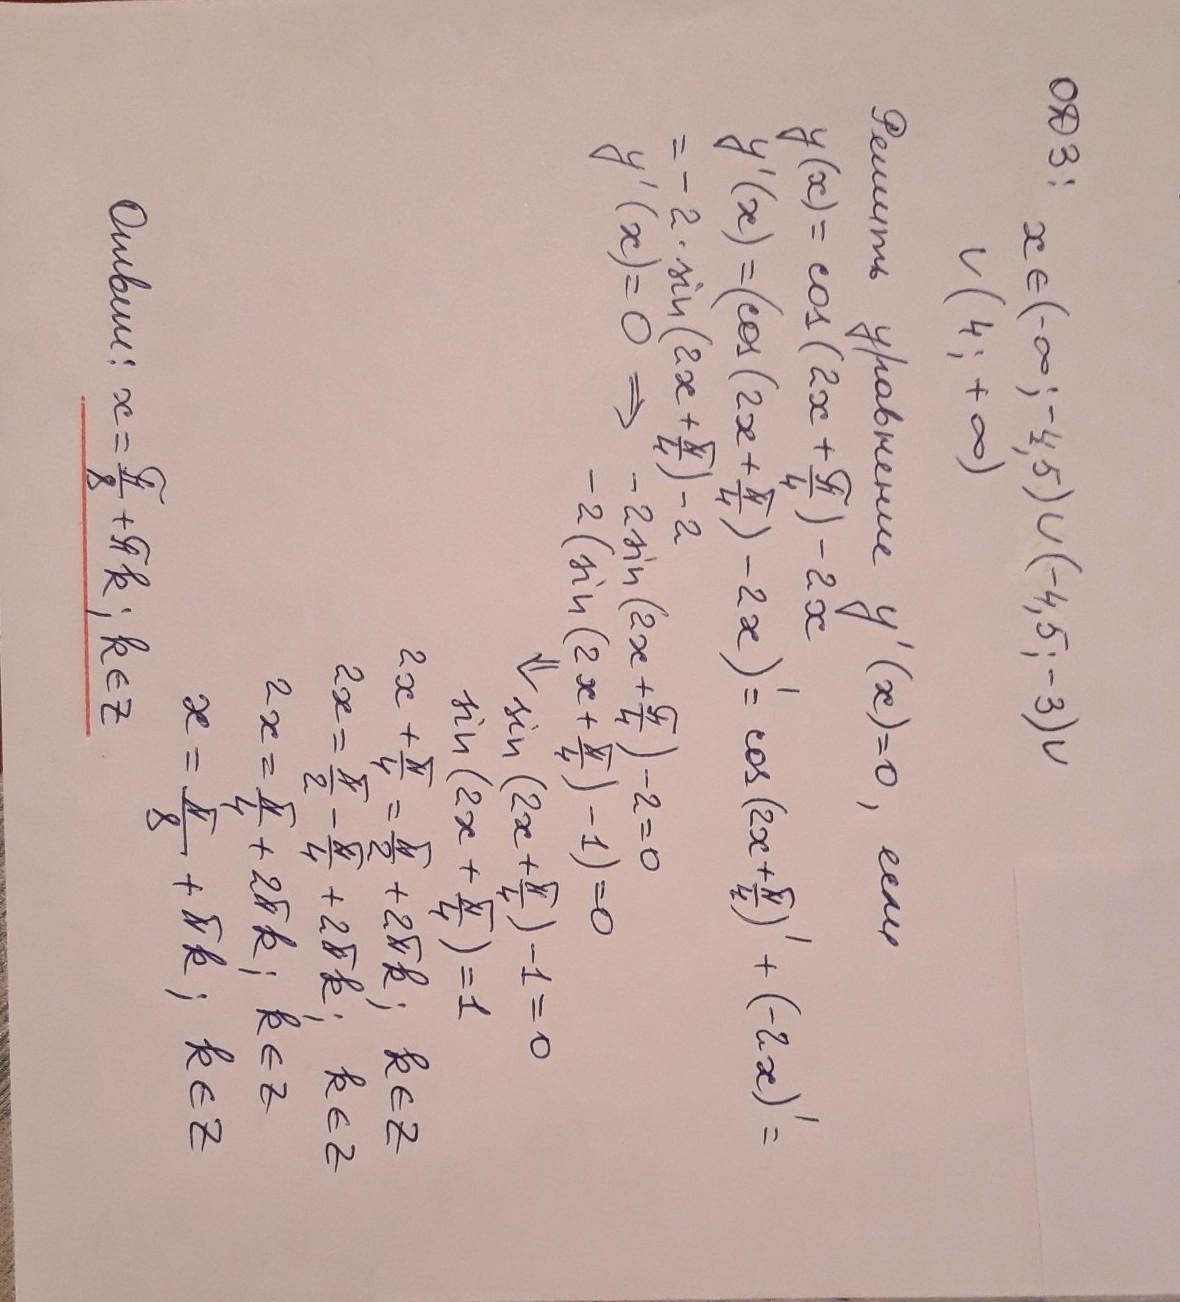 ОДЗ: x∈(-∞;-4,5)∪(-4,5;-3)∪
∪(4;+∞)
Решить уравнение y'(x)=0, если
y(x)=cos(2x+π/4)-2x
y'(x)=(cos(2x+π/4)-2x)'=cos(2x+π/4)'+(-2x)'=
=-2·sin(2x+π/4)-2
y'(x)=0 ⇒ -2sin(2x+π/4)-2=0
-2(sin(2x+π/4)-1)=0
⇓ sin(2x+π/4)-1=0
sin(2x+π/4)=1
2x+π/4=π/2+2πk; k∈Z
2x=π/2-π/4+2πk; k∈Z
2x=π/4+2πk; k∈Z
x=π/8+πk; k∈Z
Ответ: x=π/8+πk; k∈Z